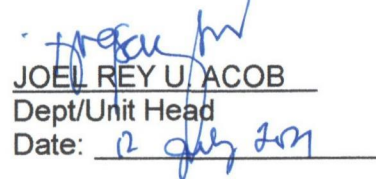 JOEL REY U. ACOB
Dept/Unit Head
Date: 12 July 2021